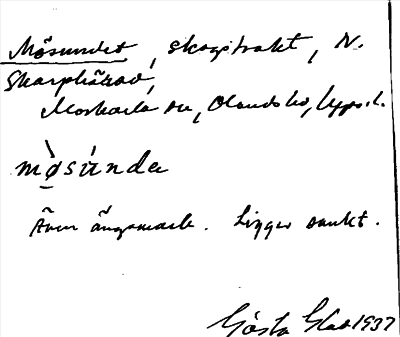 Mösundet, skogstrakt, N.
Skarphärad,
Morkarla sn, Olands hd, Upps. l.
mø̀súnda
Även ängsmark. Ligger sankt.
Gösta 1937